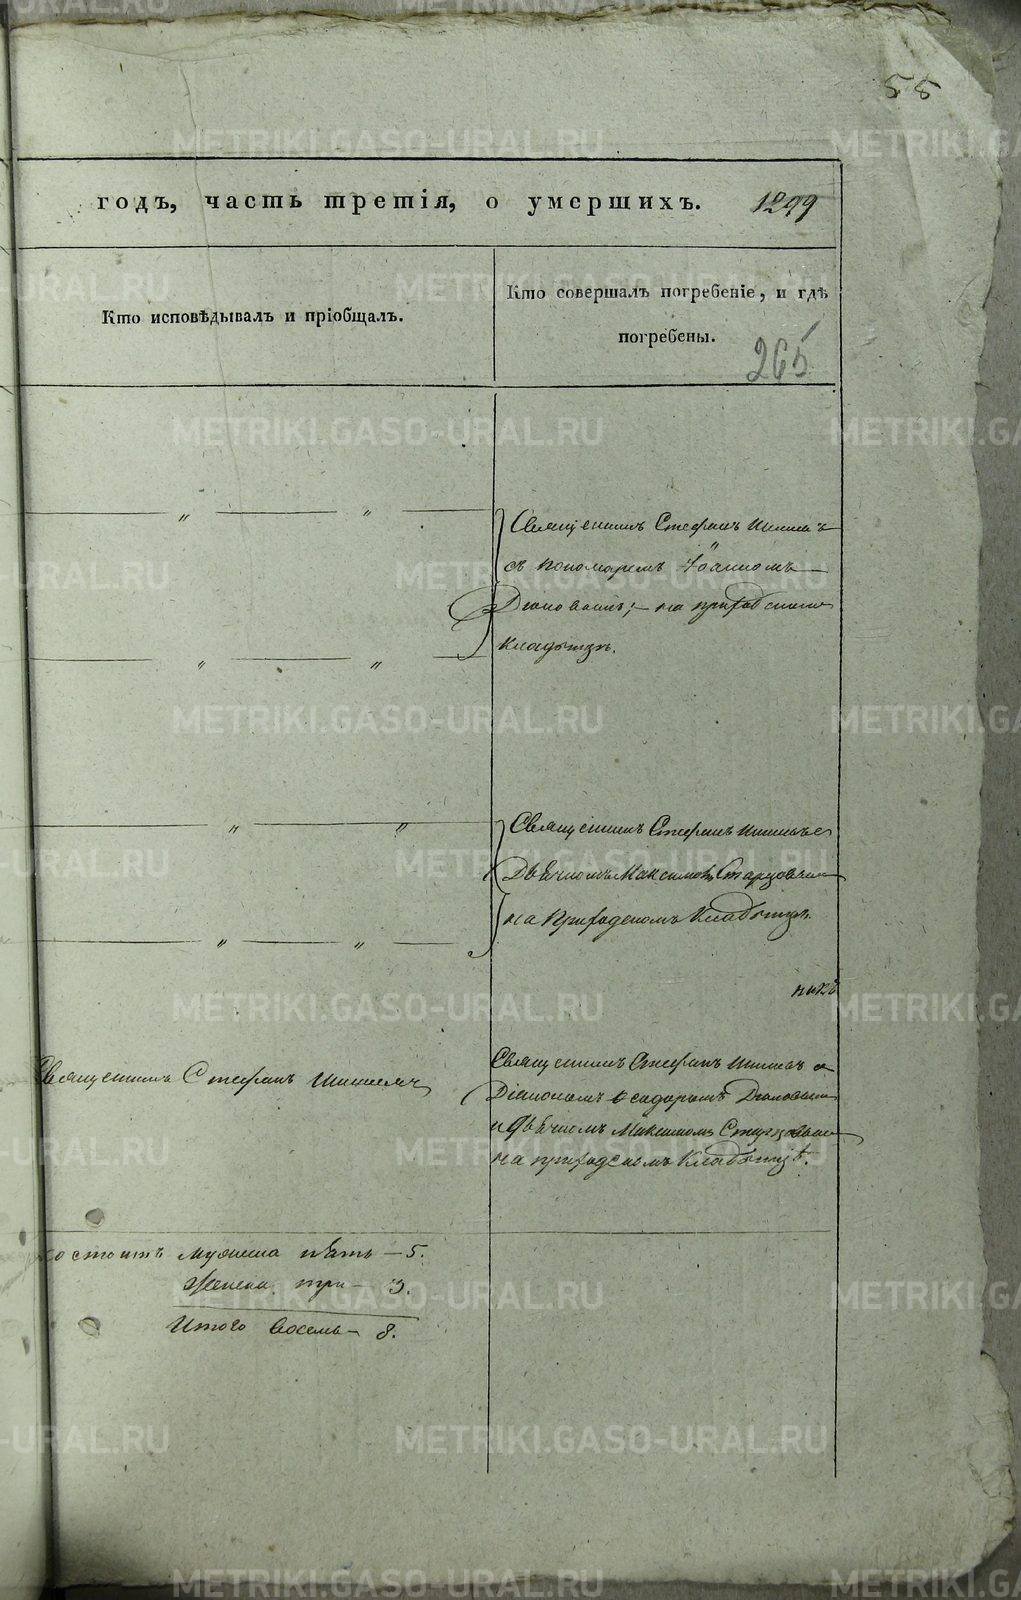 58
годъ, часть третія, о умершихъ. 1299
Кто исповѣдывалъ и пріобщалъ.
Кто совершалъ погребеніе, и гдѣ
погребены.
265
Священникъ Стефанъ
съ пономаремъ Іоанномъ
на приходскомъ
Кладбищѣ.
Священникъ Стефанъ
Дьячкомъ Максимомъ Старцовымъ
на Приходскомъ Кладбищѣ.
Священникъ Стефанъ
Священникъ Стефанъ
Діакономъ
и Дьячкомъ Максимомъ Старцовымъ
на приходскомъ Кладбищѣ.
состоитъ мужеска пять — 5.
Женска три — 3.
Итого восемь — 8.
METRIKI.GASO-URAL.RU